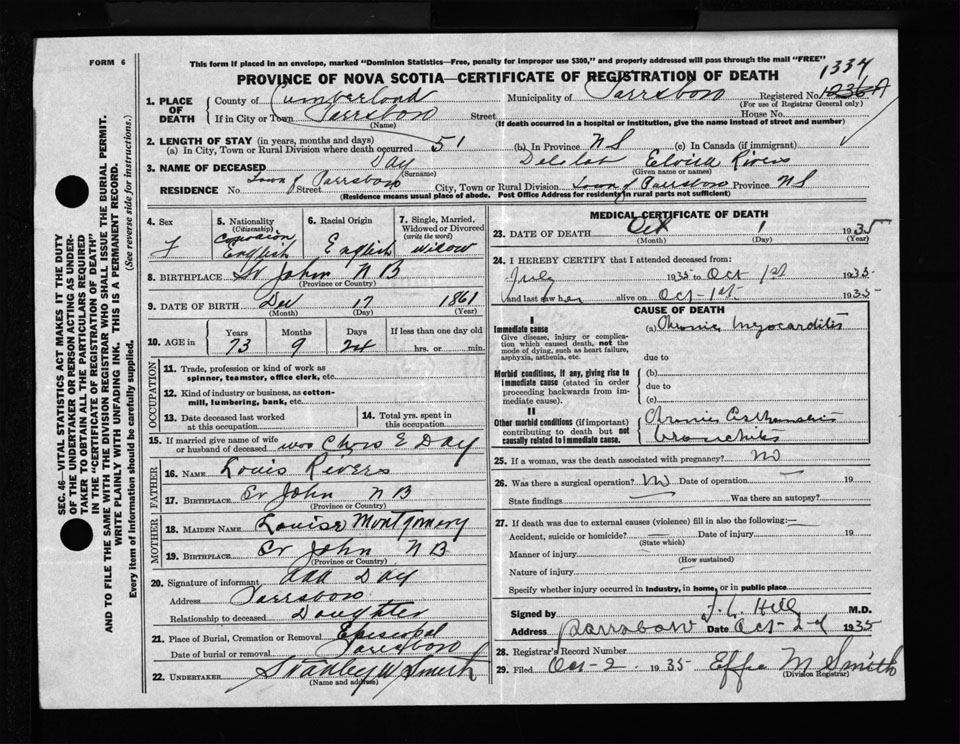 FORM 6
This form if placed in an envelope, marked "Dominion Statistics—Free, penalty for improper use $300," and properly addressed will pass through the mail "FREE"
PROVINCE OF NOVA SCOTIA—CERTIFICATE OF REGISTRATION OF DEATH
1334
1. PLACE OF DEATH County of Cumberland Municipality of Parrsboro Registered No. 1236A
(For use of Registrar General only)
If in City or Town Parrsboro Street House No.
(Name) (If death occurred in a hospital or institution, give the name instead of street and number)
2. LENGTH OF STAY (in years, months and days)
(a) In City, Town or Rural Division where death occurred 51 (b) In Province NS (c) In Canada (if immigrant)
3. NAME OF DECEASED Day Eloisa Rivers
(Surname) (Given name or names)
RESIDENCE No. Town of Parrsboro Street City, Town or Rural Division Town of Parrsboro Province NS
(Residence means usual place of abode. Post Office Address for residents in rural parts not sufficient)
4. Sex F
5. Nationality (Citizenship) Canadian English
6. Racial Origin English
7. Single, Married, Widowed or Divorced (write the word) Widow
8. BIRTHPLACE St John NB
(Province or Country)
9. DATE OF BIRTH Dec 17 1861
(Month) (Day) (Year)
10. AGE in Years 73 Months 9 Days If less than one day old hrs. or min.
OCCUPATION
11. Trade, profession or kind of work as spinner, teamster, office clerk, etc.
12. Kind of industry or business, as cotton-mill, lumbering, bank, etc.
13. Date deceased last worked at this occupation
14. Total yrs. spent in this occupation
15. If married give name of wife or husband of deceased was Chas E Day
FATHER
16. NAME Louis Rivers
17. BIRTHPLACE St John NB
MOTHER
18. MAIDEN NAME Louise Montgomery
19. BIRTHPLACE St John NB
(Province or Country)
20. Signature of informant Ada Day
Address Parrsboro
Relationship to deceased Daughter
21. Place of Burial, Cremation or Removal Episcopal
Date of burial or removal Parrsboro
22. UNDERTAKER Stanley W Smith
(Name and address)
MEDICAL CERTIFICATE OF DEATH
23. DATE OF DEATH Oct 1 1935
(Month) (Day) (Year)
24. I HEREBY CERTIFY that I attended deceased from:
July 1935 to Oct 1st 1935
and last saw her alive on Oct-1st 1935
CAUSE OF DEATH
I
Immediate cause (a) Chronic Myocarditis
Give disease, injury or complication which caused death, not the mode of dying, such as heart failure, asphyxia, asthenia, etc.
due to
Morbid conditions, if any, giving rise to immediate cause (stated in order proceeding backwards from immediate cause).
(b)
due to
(c)
II
Other morbid conditions (if important) contributing to death but not causally related to immediate cause.
Chronic Asthmatic Bronchitis
25. If a woman, was the death associated with pregnancy? No
26. Was there a surgical operation? No Date of operation 19
State findings Was there an autopsy?
27. If death was due to external causes (violence) fill in also the following:—
Accident, suicide or homicide? Date of injury 19
(State which)
Manner of injury
(How sustained)
Nature of injury
Specify whether injury occurred in industry, in home, or in public place
Signed by Hill M.D.
Address Parrsboro Date Oct-2 1935
28. Registrar's Record Number
29. Filed Oct-2 1935 Effie M Smith
(Division Registrar)
SEC. 46—VITAL STATISTICS ACT MAKES IT THE DUTY
OF THE UNDERTAKER OR PERSON ACTING AS UNDER-
TAKER TO OBTAIN ALL THE PARTICULARS REQUIRED
IN THE "CERTIFICATE OF REGISTRATION OF DEATH"
AND TO FILE THE SAME WITH THE DIVISION REGISTRAR WHO SHALL ISSUE THE BURIAL PERMIT.
WRITE PLAINLY WITH UNFADING INK. THIS IS A PERMANENT RECORD.
Every item of information should be carefully supplied. (See reverse side for instructions.)